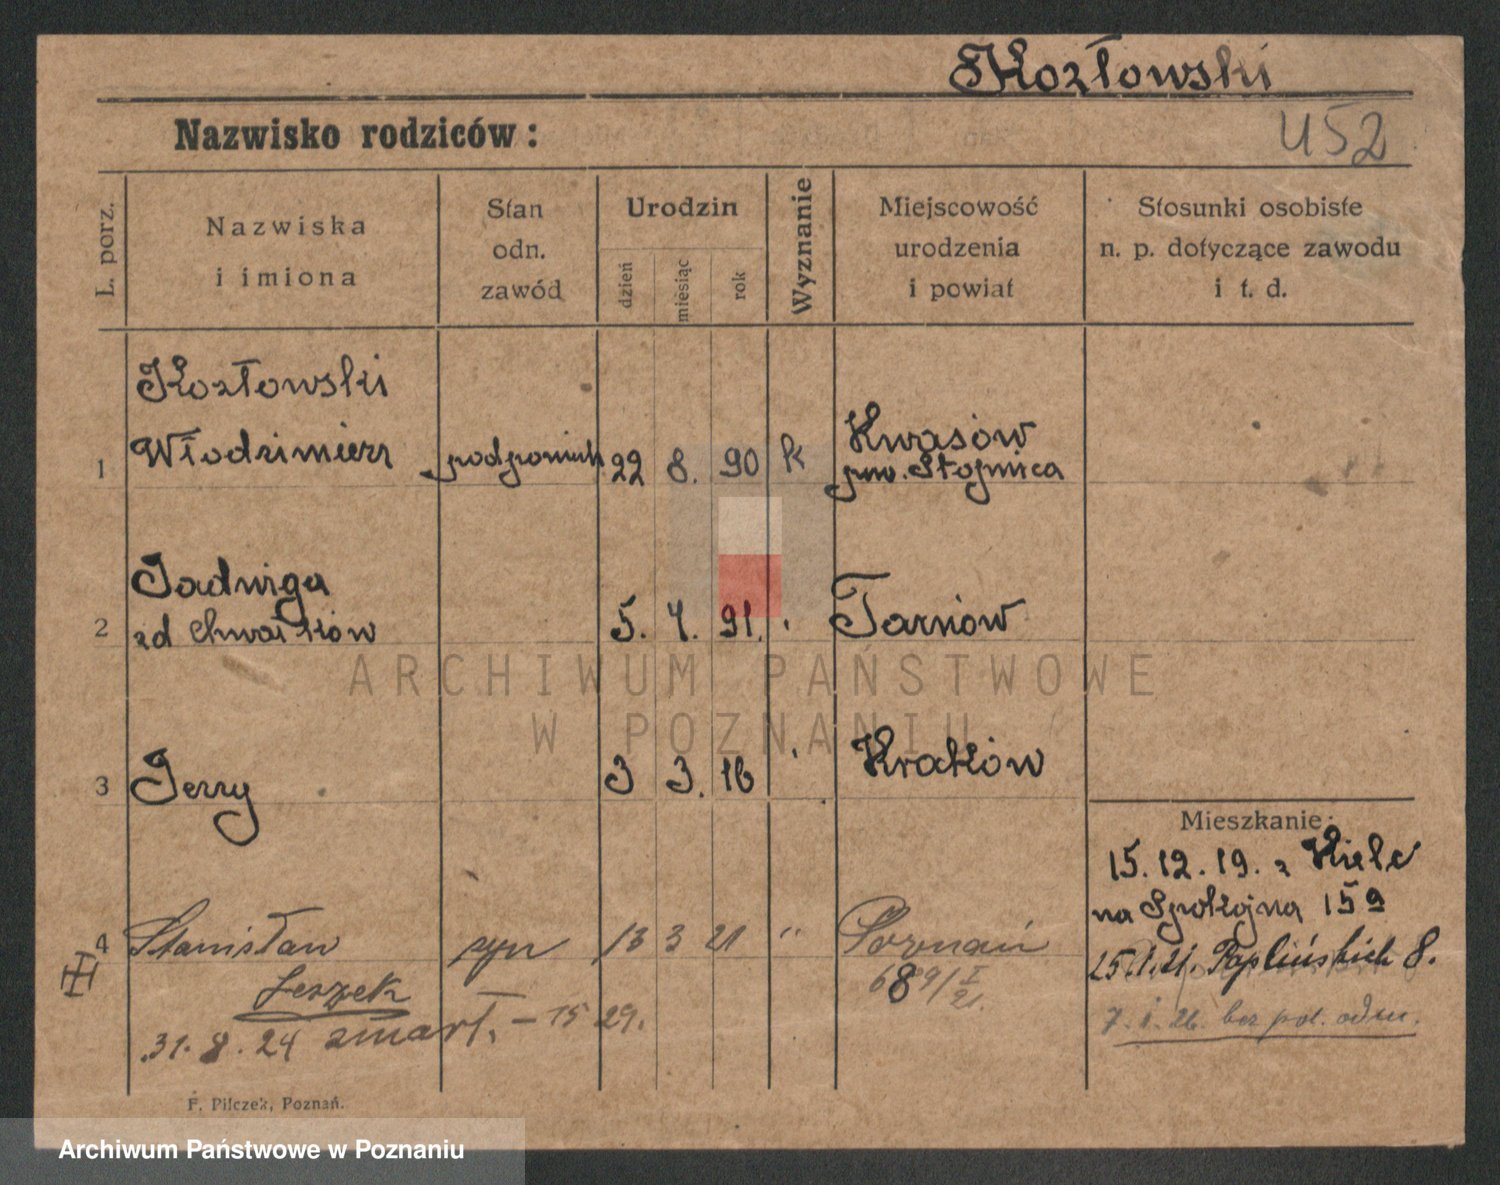 Kozłowski
Nazwisko rodziców:
U52
L. porz.
Nazwiska
i imiona
Stan
odn.
zawód
Urodzin
dzień
miesiąc
rok
Wyznanie
Miejscowość
urodzenia
i powiat
Stosunki osobiste
n. p. dotyczące zawodu
i t. d.
Kozłowski
1 Włodzimierz podporucz 22 8. 90 k Kwasów
pow. Stopnica
Jadwiga
2 zd Chwastków 5. 4. 91. Tarnów
3 Jerzy 3 3. 16 Kraków
Mieszkanie:
15.12.19. z Kielc
na Spokojna 15a
4 Stanisław syn 13 3 21 " Poznań
25.1.21. 8.
Leszek
689/I
21.
31.8.24 zmarł. – 1529.
7.1.26. bez pol. odm.
F. Pilczek, Poznań.
ARCHIWUM PAŃSTWOWE
W POZNANIU
Archiwum Państwowe w Poznaniu